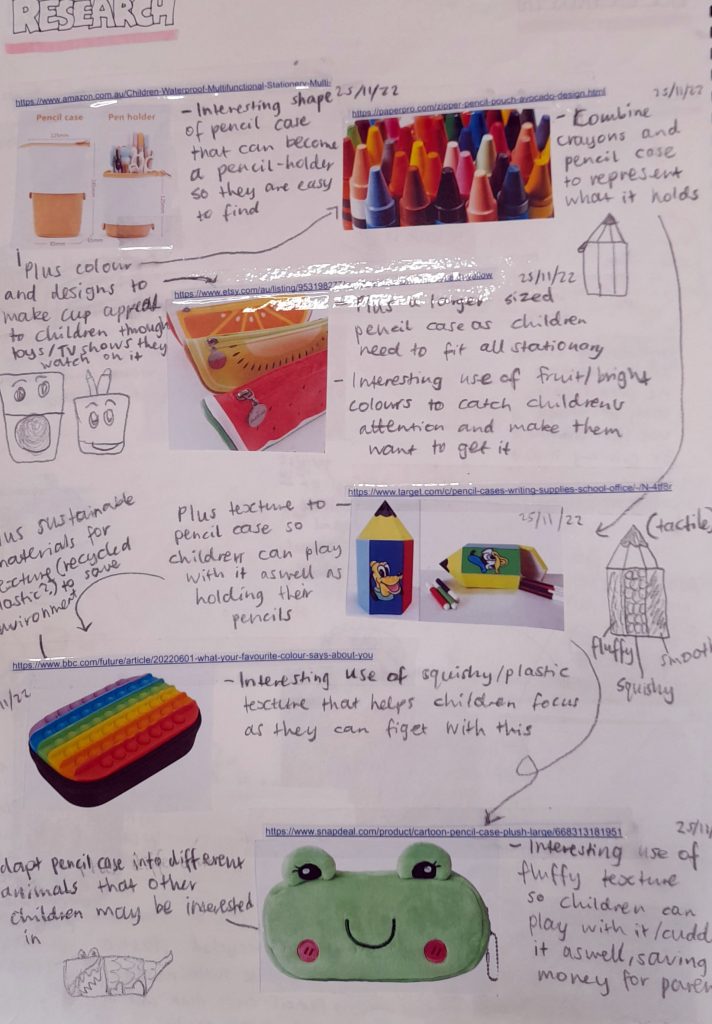 RESEARCH
https://www.amazon.com.au/Children-Waterproof-Multifunctional-Stationery-Multi-
25/11/22
Pencil case
Pen holder
125mm
85mm
- Interesting shape
of pencil case
that can become
a pencil-holder
so they are easy
to find
https://paperpro.com/zipper-pencil-pouch-avocado-design.html
25/11/22
- Combine
crayons and
pencil case
to represent
what it holds
Plus colour
and designs to
make cup appeal
to children through
toys/TV shows they
watch on it
https://www.etsy.com/au/listing/9531982
25/11/22
- Plus a larger sized
pencil case as children
need to fit all stationary
- Interesting use of fruit/bright
colours to catch childrens
attention and make them
want to get it
https://www.target.com/c/pencil-cases-writing-supplies-school-office/-/N-4tf8r
25/11/22
Plus texture to
pencil case so
children can play
with it aswell as
holding their
pencils
(tactile)
fluffy
smooth
squishy
lus sustainable
materials for
texture (recycled
lastic?) to save
nvironment
https://www.bbc.com/future/article/20220601-what-your-favourite-colour-says-about-you
11/22
- Interesting use of squishy/plastic
texture that helps children focus
as they can figet with this
https://www.snapdeal.com/product/cartoon-pencil-case-plush-large/668313181951
25/11/
- Interesting use of
fluffy texture
so children can
play with it/cudd
it aswell, saving
money for paren
dapt pencil case into different
animals that other
children may be interested
in